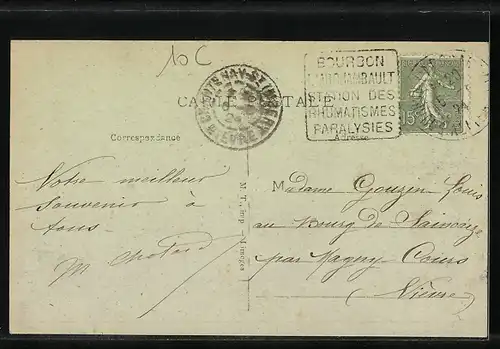 10 C
BOURBON
L'ARCHAMBAULT
STATION DES
RHUMATISMES
PARALYSIES
CARTE POSTALE
15
Correspondance
Adresse
Notre meilleur
souvenir à
tous.
M
M. T., imp. — Limoges
Madame Gouzien Louis
au Bourg de
par Magny Cours
(Nièvre)